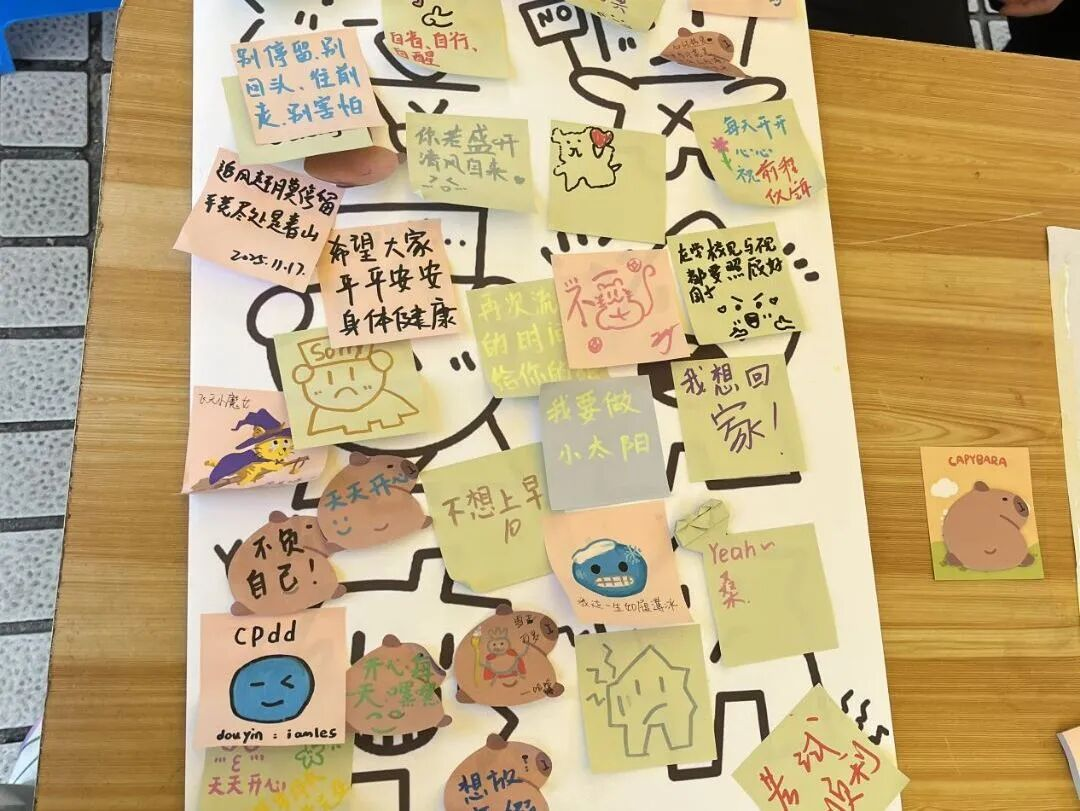 NO
自省、自行、
自醒
别停留、别
回头、往前
走、别害怕
你若盛开
清风自来
每天开开
心心
祝前程
似锦
追风赶月莫停留
平芜尽处是春山
2025.11.17.
希望大家
平平安安
身体健康
再次流
的时间
给你的
不
在学校见与视
都要照顾好
自己
Sorry
我要做
小太阳
我想回
家！
飞天小魔女
天天开心
不想上早
10
不负
自己！
我这一生如履薄冰
Yeah~
桑
CAPYBARA
cpdd
douyin：iamles
开心每
一天嘿嘿
天天开心
想放
考试
顺利